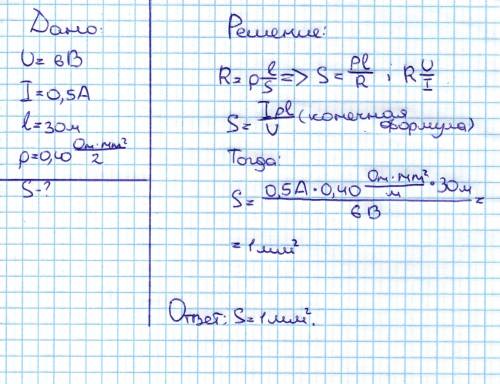 Дано:
U = 6В
I = 0,5А
l = 30м
ρ = 0,40 Ом·мм²/2
S - ?
Решение:
R = ρ l/S => S = ρl/R ; R U/I
S = Iρl/U (конечная формула)
Тогда:
S = 0,5А · 0,40 Ом·мм²/м · 30м / 6В =
= 1мм²
Ответ: S = 1мм².